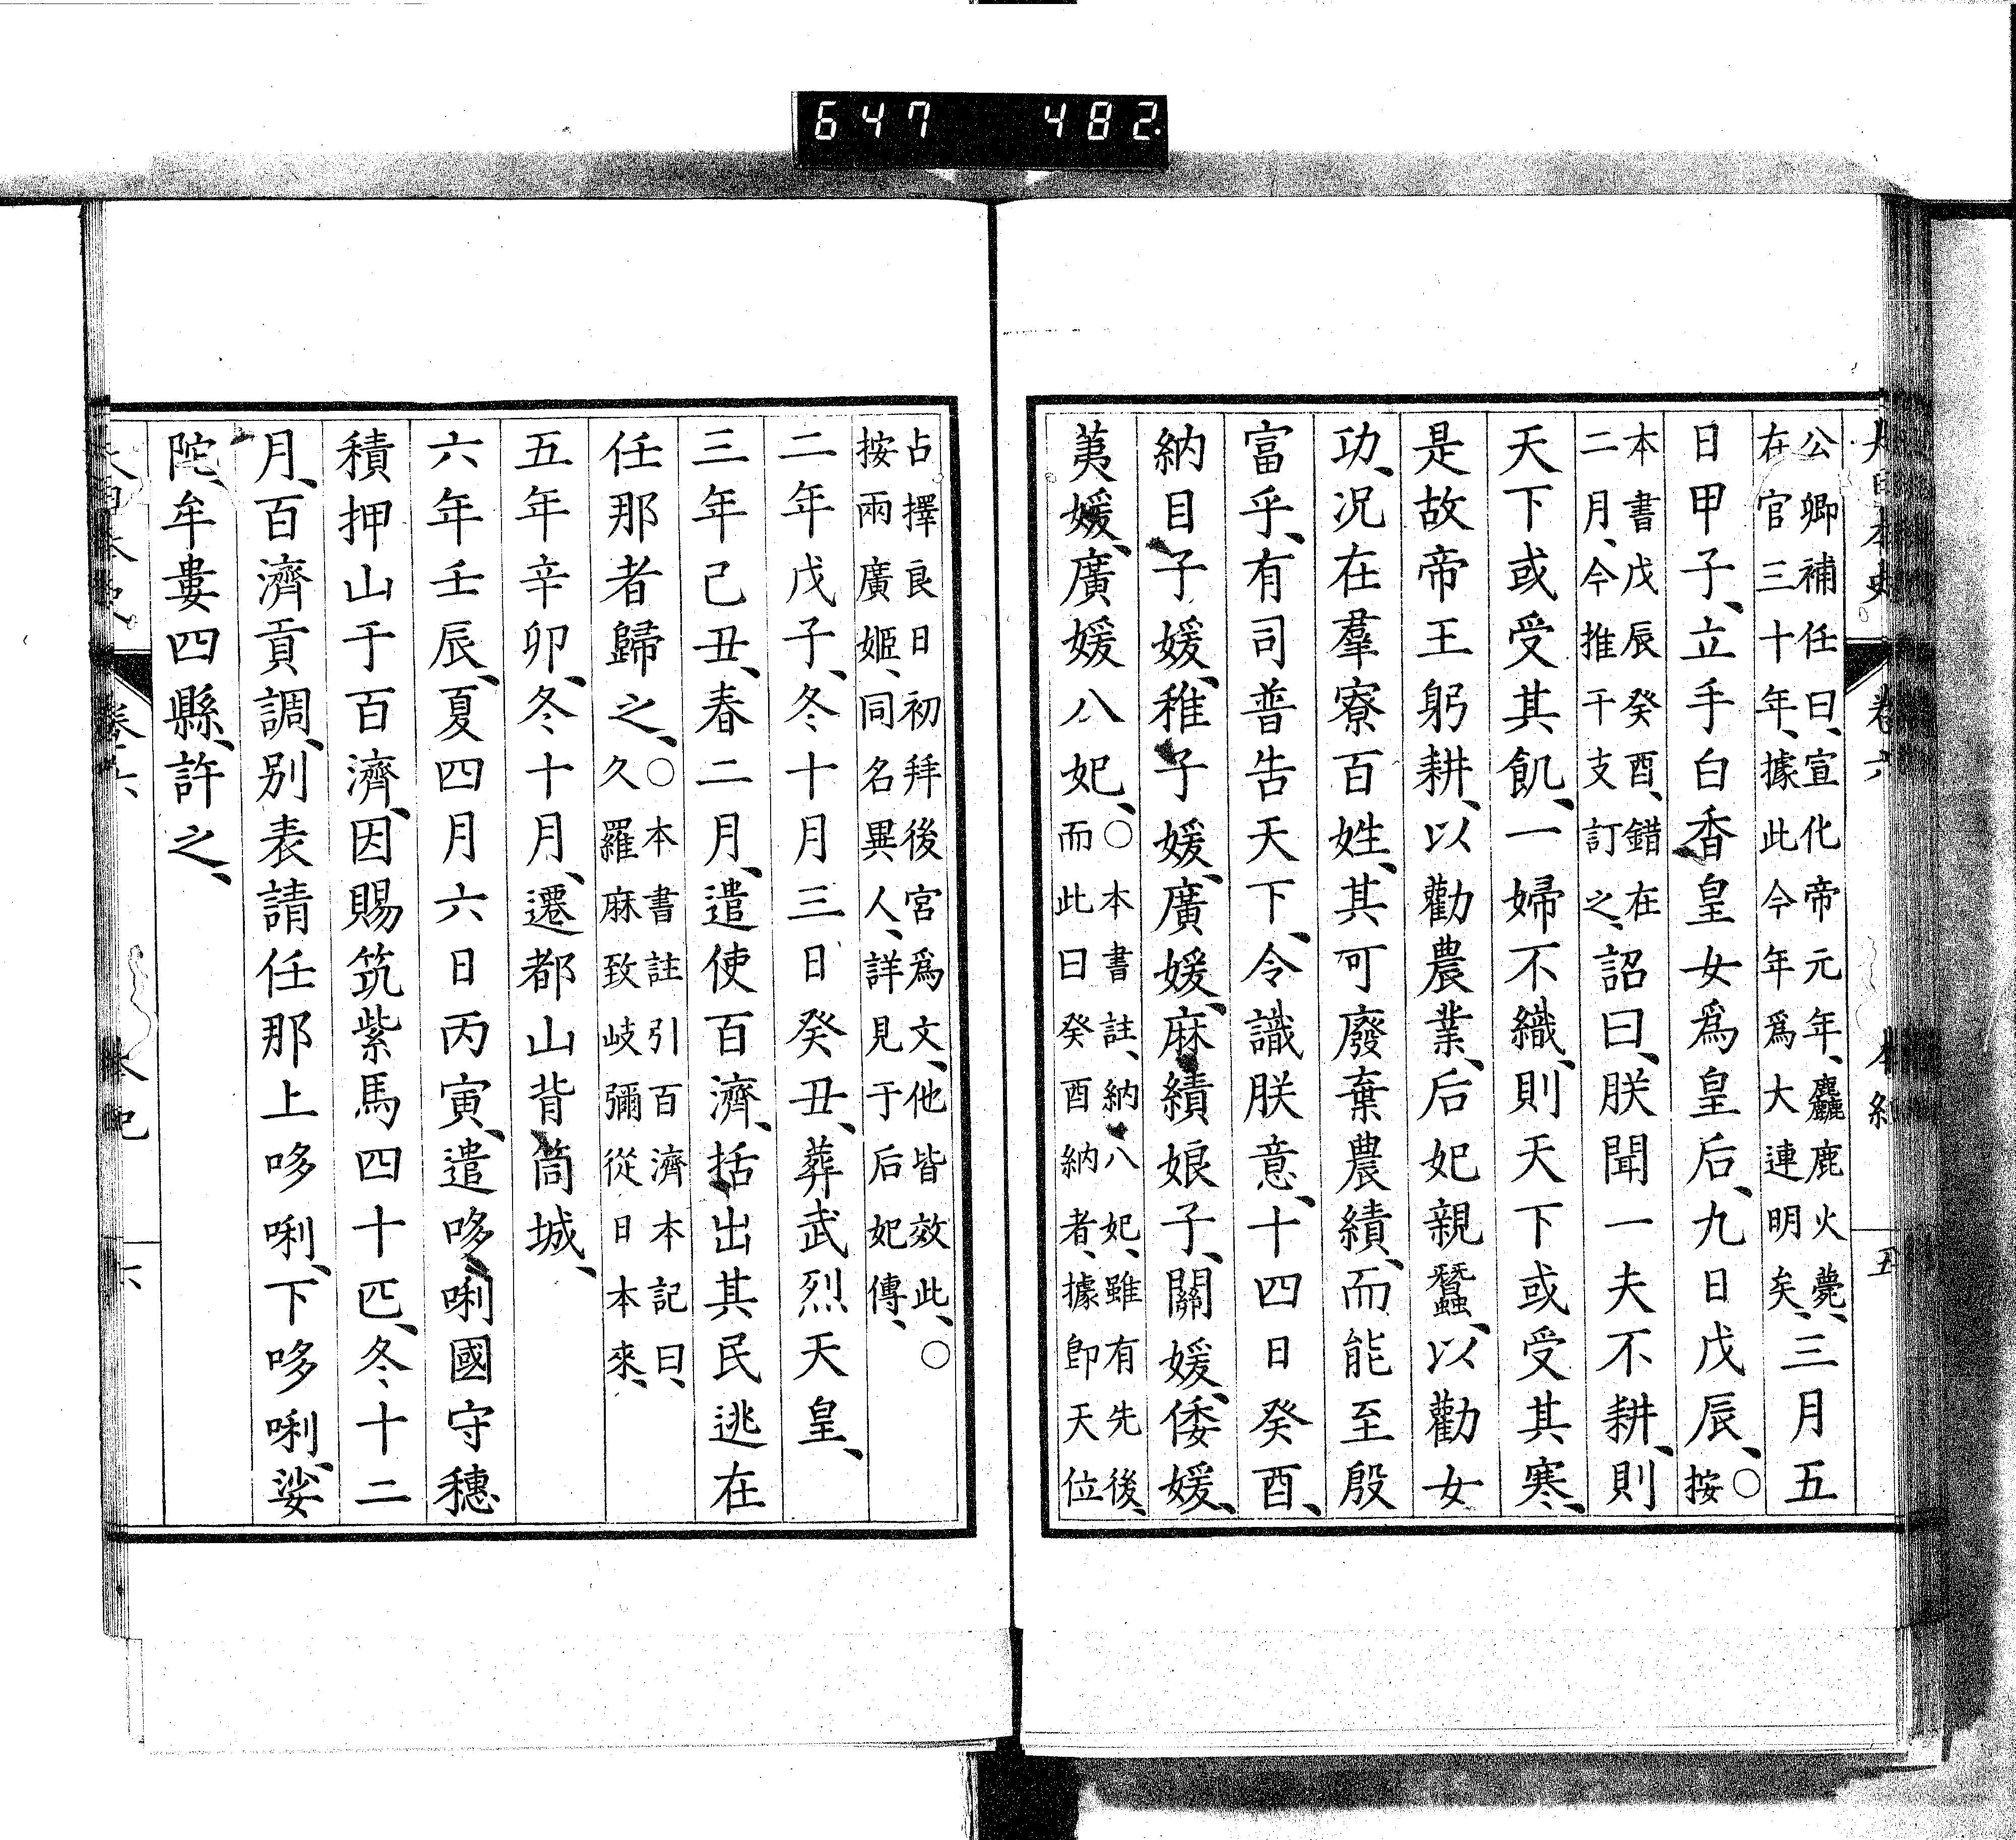 647 482
大日本史 卷六 本紀 五
公卿補任曰、宣化帝元年、麤鹿火薨、
在官三十年、據此今年爲大連明矣、三月五
日甲子、立手白香皇女爲皇后、九日戊辰、○按
本書戊辰癸酉、錯在
二月、今推干支訂之、詔曰、朕聞一夫不耕、則
天下或受其飢、一婦不織、則天下或受其寒、
是故帝王躬耕、以勸農業、后妃親蠶、以勸女
功、況在羣寮百姓、其可廢棄農績、而能至殷
富乎、有司普告天下、令識朕意、十四日癸酉、
納目子媛、稚子媛、廣媛、麻績娘子、關媛、倭媛、
荑媛、廣媛八妃、○本書註、納八妃、雖有先後、
而此曰癸酉納者、據卽天位
占擇良日初拜後宮爲文、他皆效此、○
按兩廣姬、同名異人、詳見于后妃傳、
二年戊子、冬十月三日癸丑、葬武烈天皇、
三年己丑、春二月、遣使百濟、括出其民逃在
任那者歸之、○本書註引百濟本記曰、
久羅麻致岐彌從日本來、
五年辛卯、冬十月、遷都山背筒城、
六年壬辰、夏四月六日丙寅、遣哆唎國守穗
積押山于百濟、因賜筑紫馬四十匹、冬十二
月、百濟貢調、別表請任那上哆唎、下哆唎、娑
陀、牟婁四縣、許之、
大日本史 卷六 本紀 六